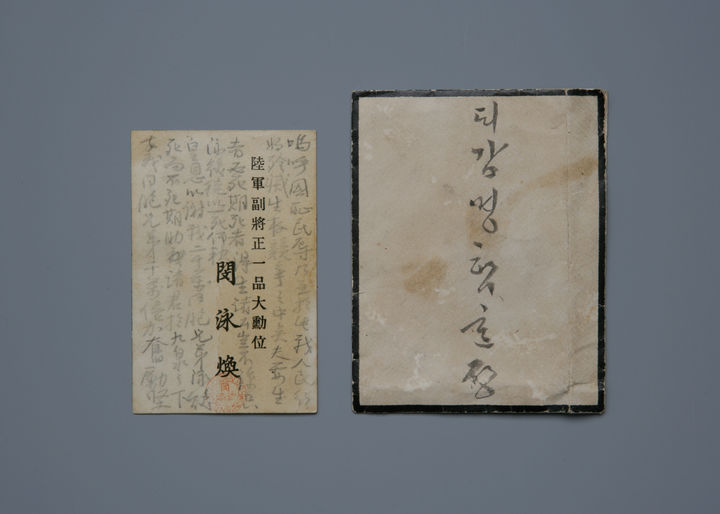 嗚呼國恥民辱乃至於此我人民行
將殄滅生存競爭之中矣夫要生
者必死期死者得生諸公豈不諒
泳煥徒以一死仰報
皇恩以謝我二千萬同胞兄弟泳煥
死而不死期助諸君於九泉之下
幸我同胞兄弟千萬億加奮勵堅
陸軍副將正一品大勳位
閔泳煥
디감명함